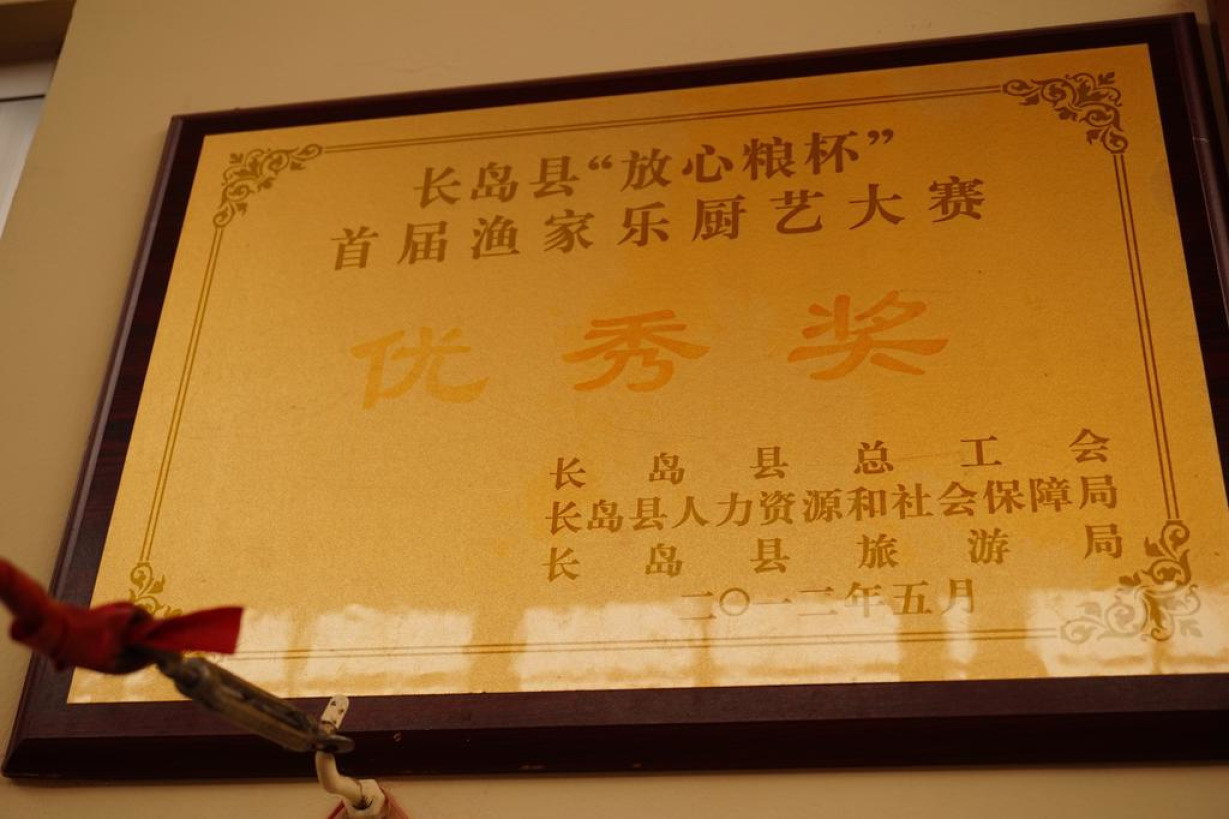 长岛县“放心粮杯”
首届渔家乐厨艺大赛
优秀奖
长岛县总工会
长岛县人力资源和社会保障局
长岛县旅游局
二〇一二年五月